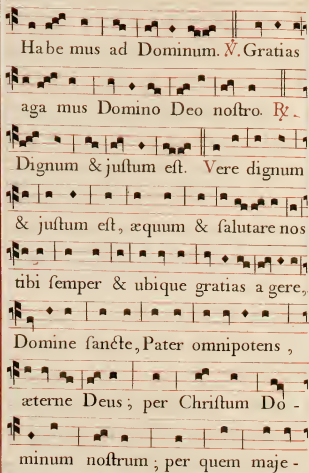 Habe mus ad Dominum. ℣. Gratias
aga mus Domino Deo noſtro. ℟.
Dignum & juſtum eſt. Vere dignum
& juſtum eſt, æquum & ſalutare nos
tibi ſemper & ubique gratias a gere,
Domine ſancte, Pater omnipotens,
æterne Deus; per Chriſtum Do -
minum noſtrum; per quem maje -